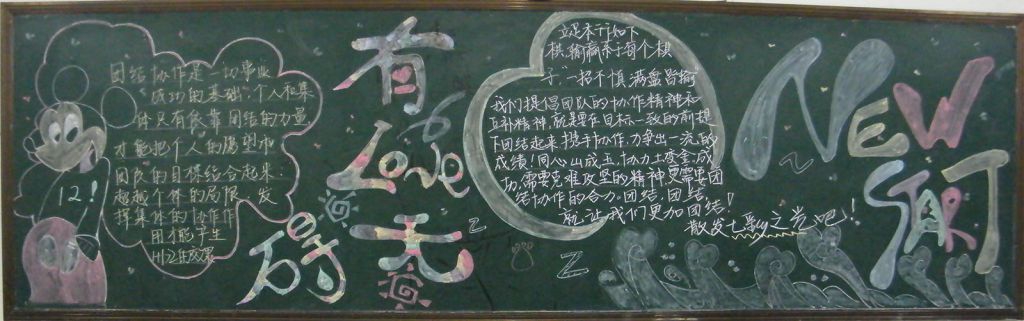 团结协作是一切事业
成功的基础，个人和集
体只有依靠团结的力量，
才能把个人的愿望和
团队的目标结合起来，
超越个体的局限，发
挥集体的协作作
用才能产生
12！
有
Love
碍
无
立足未
棋，输赢系于每个棋
子，一招不慎满盘皆输
我们提倡团队的协作精神和
互补精神，就是要在目标一致的前提
下团结起来，携手协作，力争出一流的
成绩！同心山成玉，协力土变金。成
功，需要克难攻坚的精神，更需要团
结协作的合力。团结，团结！
就让我们更加团结！
散发七彩之光吧！
NEW
START
Z
Z
Z